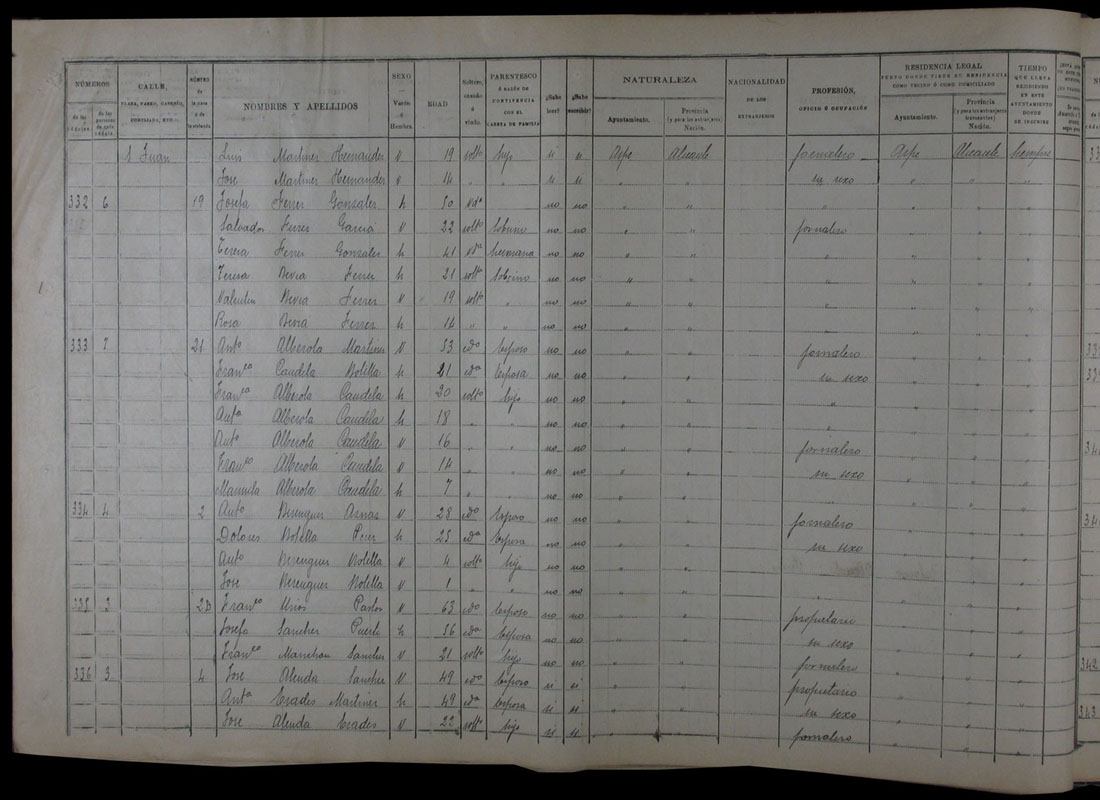 NÚMEROS CALLE, NÚMERO NOMBRES Y APELLIDOS SEXO Varón ó Hembra. EDAD Soltero, casado ó viudo. PARENTESCO Ó RAZÓN DE CONVIVENCIA CON EL CABEZA DE FAMILIA ¿Sabe leer? ¿Sabe escribir? NATURALEZA Ayuntamiento. Provincia (y para los extranjeros Nación. NACIONALIDAD DE LOS EXTRANJEROS PROFESIÓN, OFICIO Ó OCUPACIÓN RESIDENCIA LEGAL Ayuntamiento. Provincia Nación. TIEMPO QUE LLEVA RESIDIENDO EN ESTE AYUNTAMIENTO DONDE SE INSCRIBE
S Juan Luis Martinez Hernandez v 19 soltº hijo si si Aspe Alicante jornalero Aspe Alicante siempre
Jose Martinez Hernandez v 14 " " si si " " su sexo " " "
332 6 19 Josefa Ferrer Gonzalez h 50 vdª no no " " " " " "
Salvador Ferrer Garcia v 22 soltº sobrino no no " " jornalero " " "
Teresa Ferrer Gonzalez h 41 vdª hermana no no " " " " "
Teresa Devia Ferrer h 21 soltª sobrina no no " " " " "
Valentin Devia Ferrer v 19 soltº " no no " " " " "
Rosa Devia Ferrer h 14 " " no no " " " " "
333 7 21 Antº Alberola Martinez v 53 cdº Esposo no no " " jornalero " " "
Franca Candela Botella h 51 cdª Esposa no no " " su sexo " " "
Franca Alberola Candela h 20 soltª hija no no " " " " " "
Antª Alberola Candela h 18 " " no no " " " " "
Antº Alberola Candela v 16 " " no no " " jornalero " " "
Franco Alberola Candela v 14 " " no no " " su sexo " " "
Manuela Alberola Candela h 7 " " no no " " " " "
334 4 2 Antº Berenguer Aznar v 28 cdº Esposo no no " " jornalero " " "
Dolores Botella h 25 cdª Esposa no no " " su sexo " " "
Antº Berenguer Botella v 4 soltº hijo no no " " " " "
Jose Berenguer Botella v 1 " " no no " " " " "
335 3 Franco Pastor v 63 cdº Esposo no no " " propietario " " "
Josefa Sanchez Puerto h 56 cdª Esposa no no " " su sexo " " "
Franco Sanchez v 21 soltº hijo no no " " jornalero " " "
336 3 4 Jose Alenda Sanchez v 49 cdº Esposo si si " " propietario " " "
Antª Erades Martinez h 49 cdª Esposa si si " " su sexo " " "
Jose Alenda Erades v 22 soltº hijo si si " " jornalero " " "
342
343